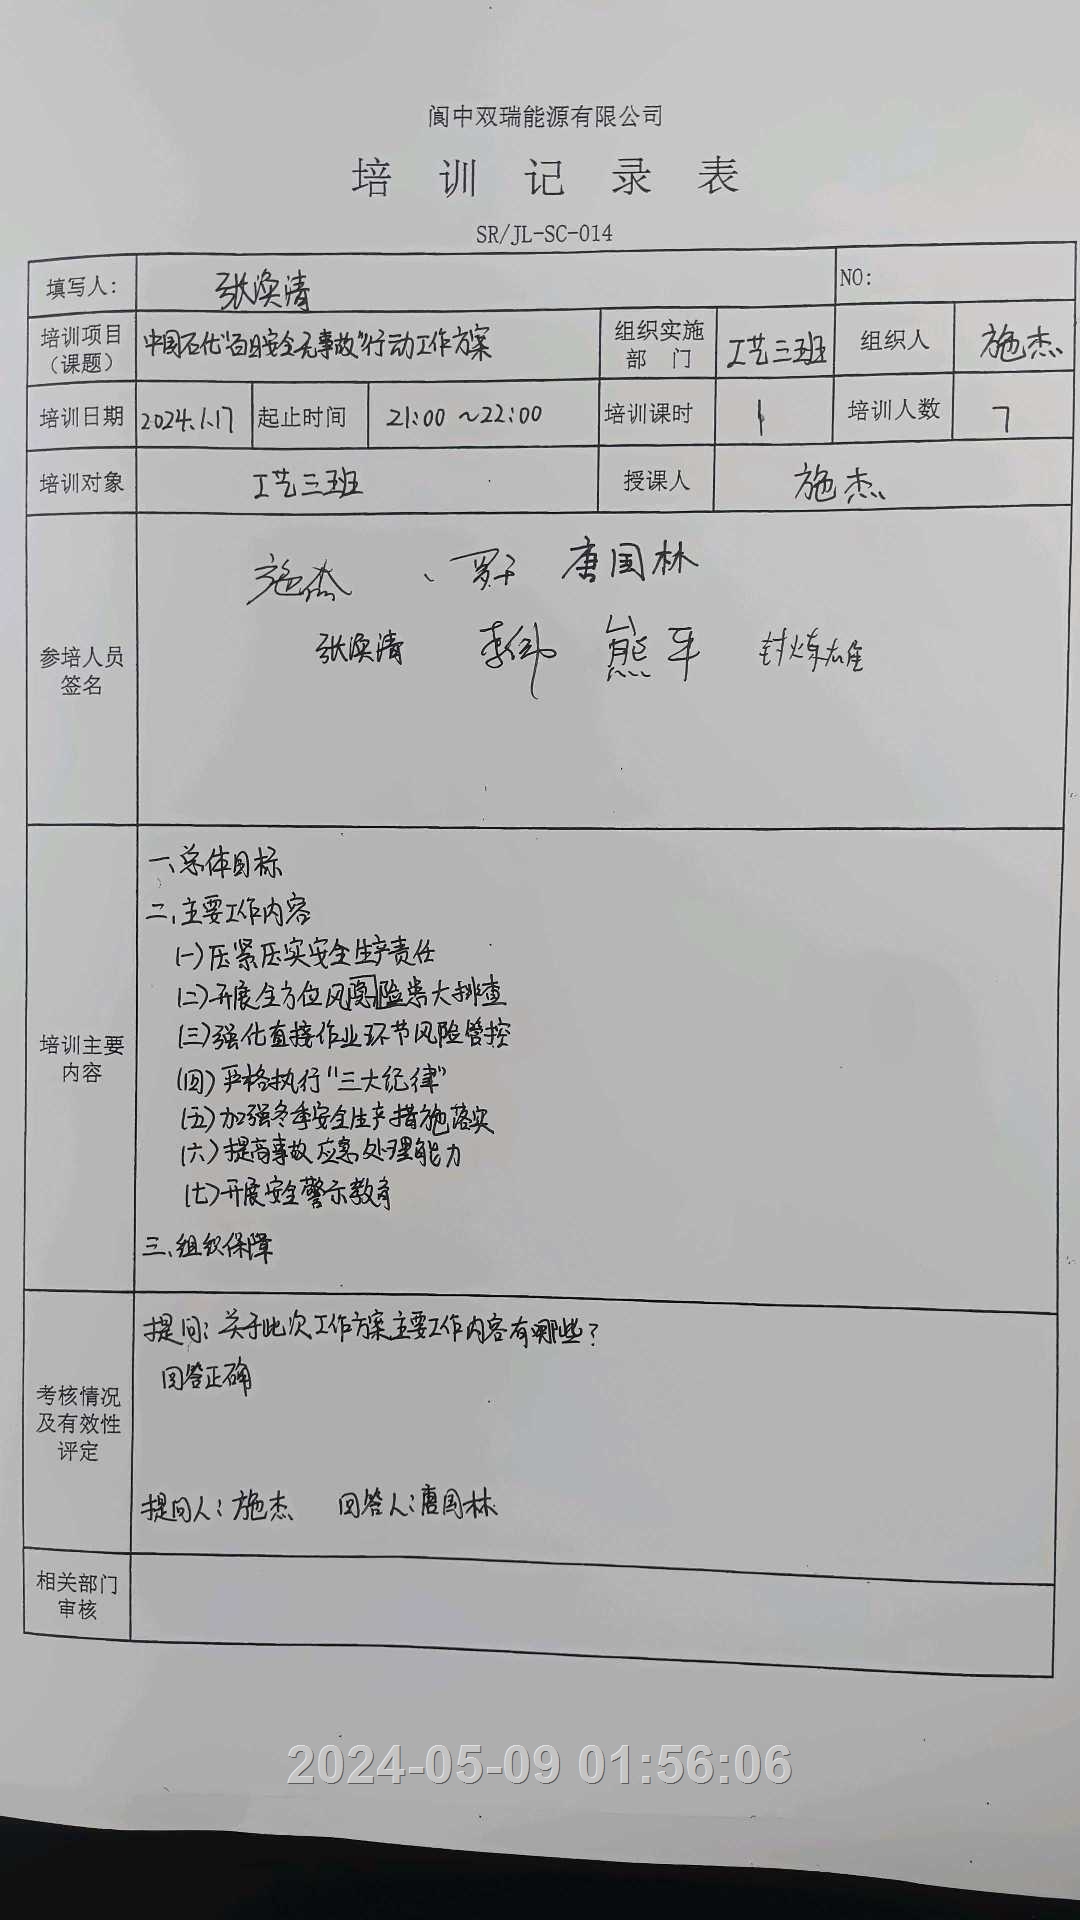 阆中双瑞能源有限公司
培训记录表
SR/JL-SC-014
填写人: 张涣清 NO:
培训项目（课题） 中国石化"百日安全无事故"行动工作方案 组织实施部门 工艺三班 组织人 施杰
培训日期 2024.1.17 起止时间 21:00 ~22:00 培训课时 1 培训人数 7
培训对象 工艺三班 授课人 施杰
参培人员签名
施杰 、 唐国林
张涣清 熊平 封炼雄
培训主要内容
一、总体目标
二、主要工作内容
(一)压紧压实安全生产责任
(二)开展全方位风险隐患大排查
(三)强化直接作业环节风险管控
(四)严格执行"三大纪律"
(五)加强冬季安全生产措施落实
(六)提高事故应急处理能力
(七)开展安全警示教育
三、组织保障
考核情况及有效性评定
提问：关于此次工作方案主要工作内容有哪些？
回答正确
提问人：施杰 回答人：唐国林
相关部门审核
2024-05-09 01:56:06